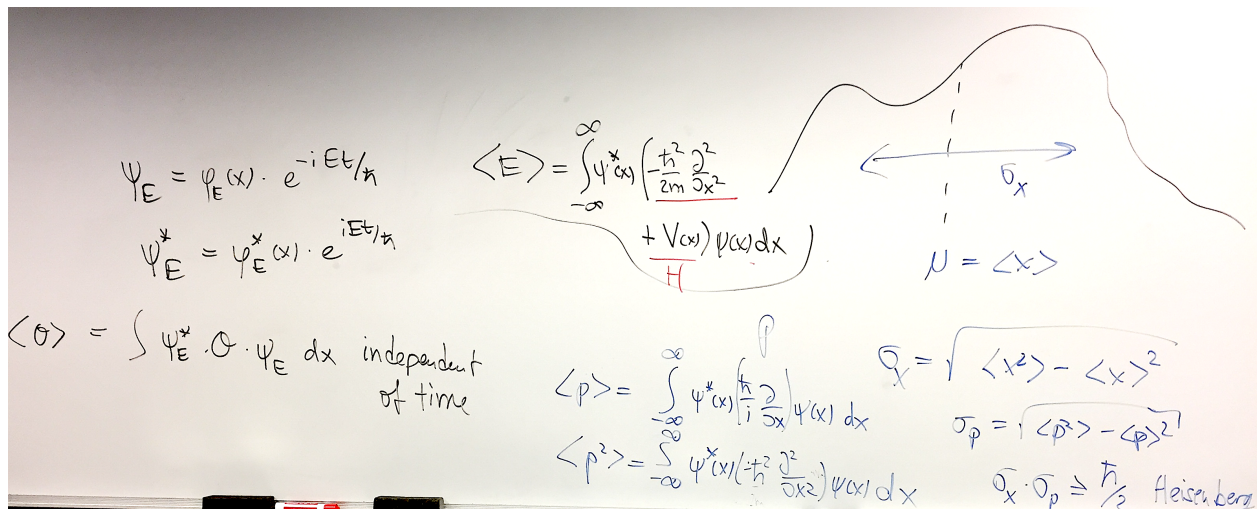 ψ_E = φ_E(x) · e^{-iEt/ħ}
ψ*_E = φ*_E(x) · e^{iEt/ħ}
<θ> = ∫ ψ*_E · θ · ψ_E dx independent
of time
<E> = ∫_{-∞}^{∞} ψ*(x) (-ħ²/2m ∂²/∂x²
+ V(x)) ψ(x) dx
H
σ_x
μ = <x>
p
<p> = ∫_{-∞}^{∞} ψ*(x) (ħ/i ∂/∂x) ψ(x) dx
<p²> = ∫_{-∞}^{∞} ψ*(x) (-ħ² ∂²/∂x²) ψ(x) dx
σ_x = √(<x²> - <x>²)
σ_p = √(<p²> - <p>²)
σ_x · σ_p ≥ ħ/2 Heisenberg